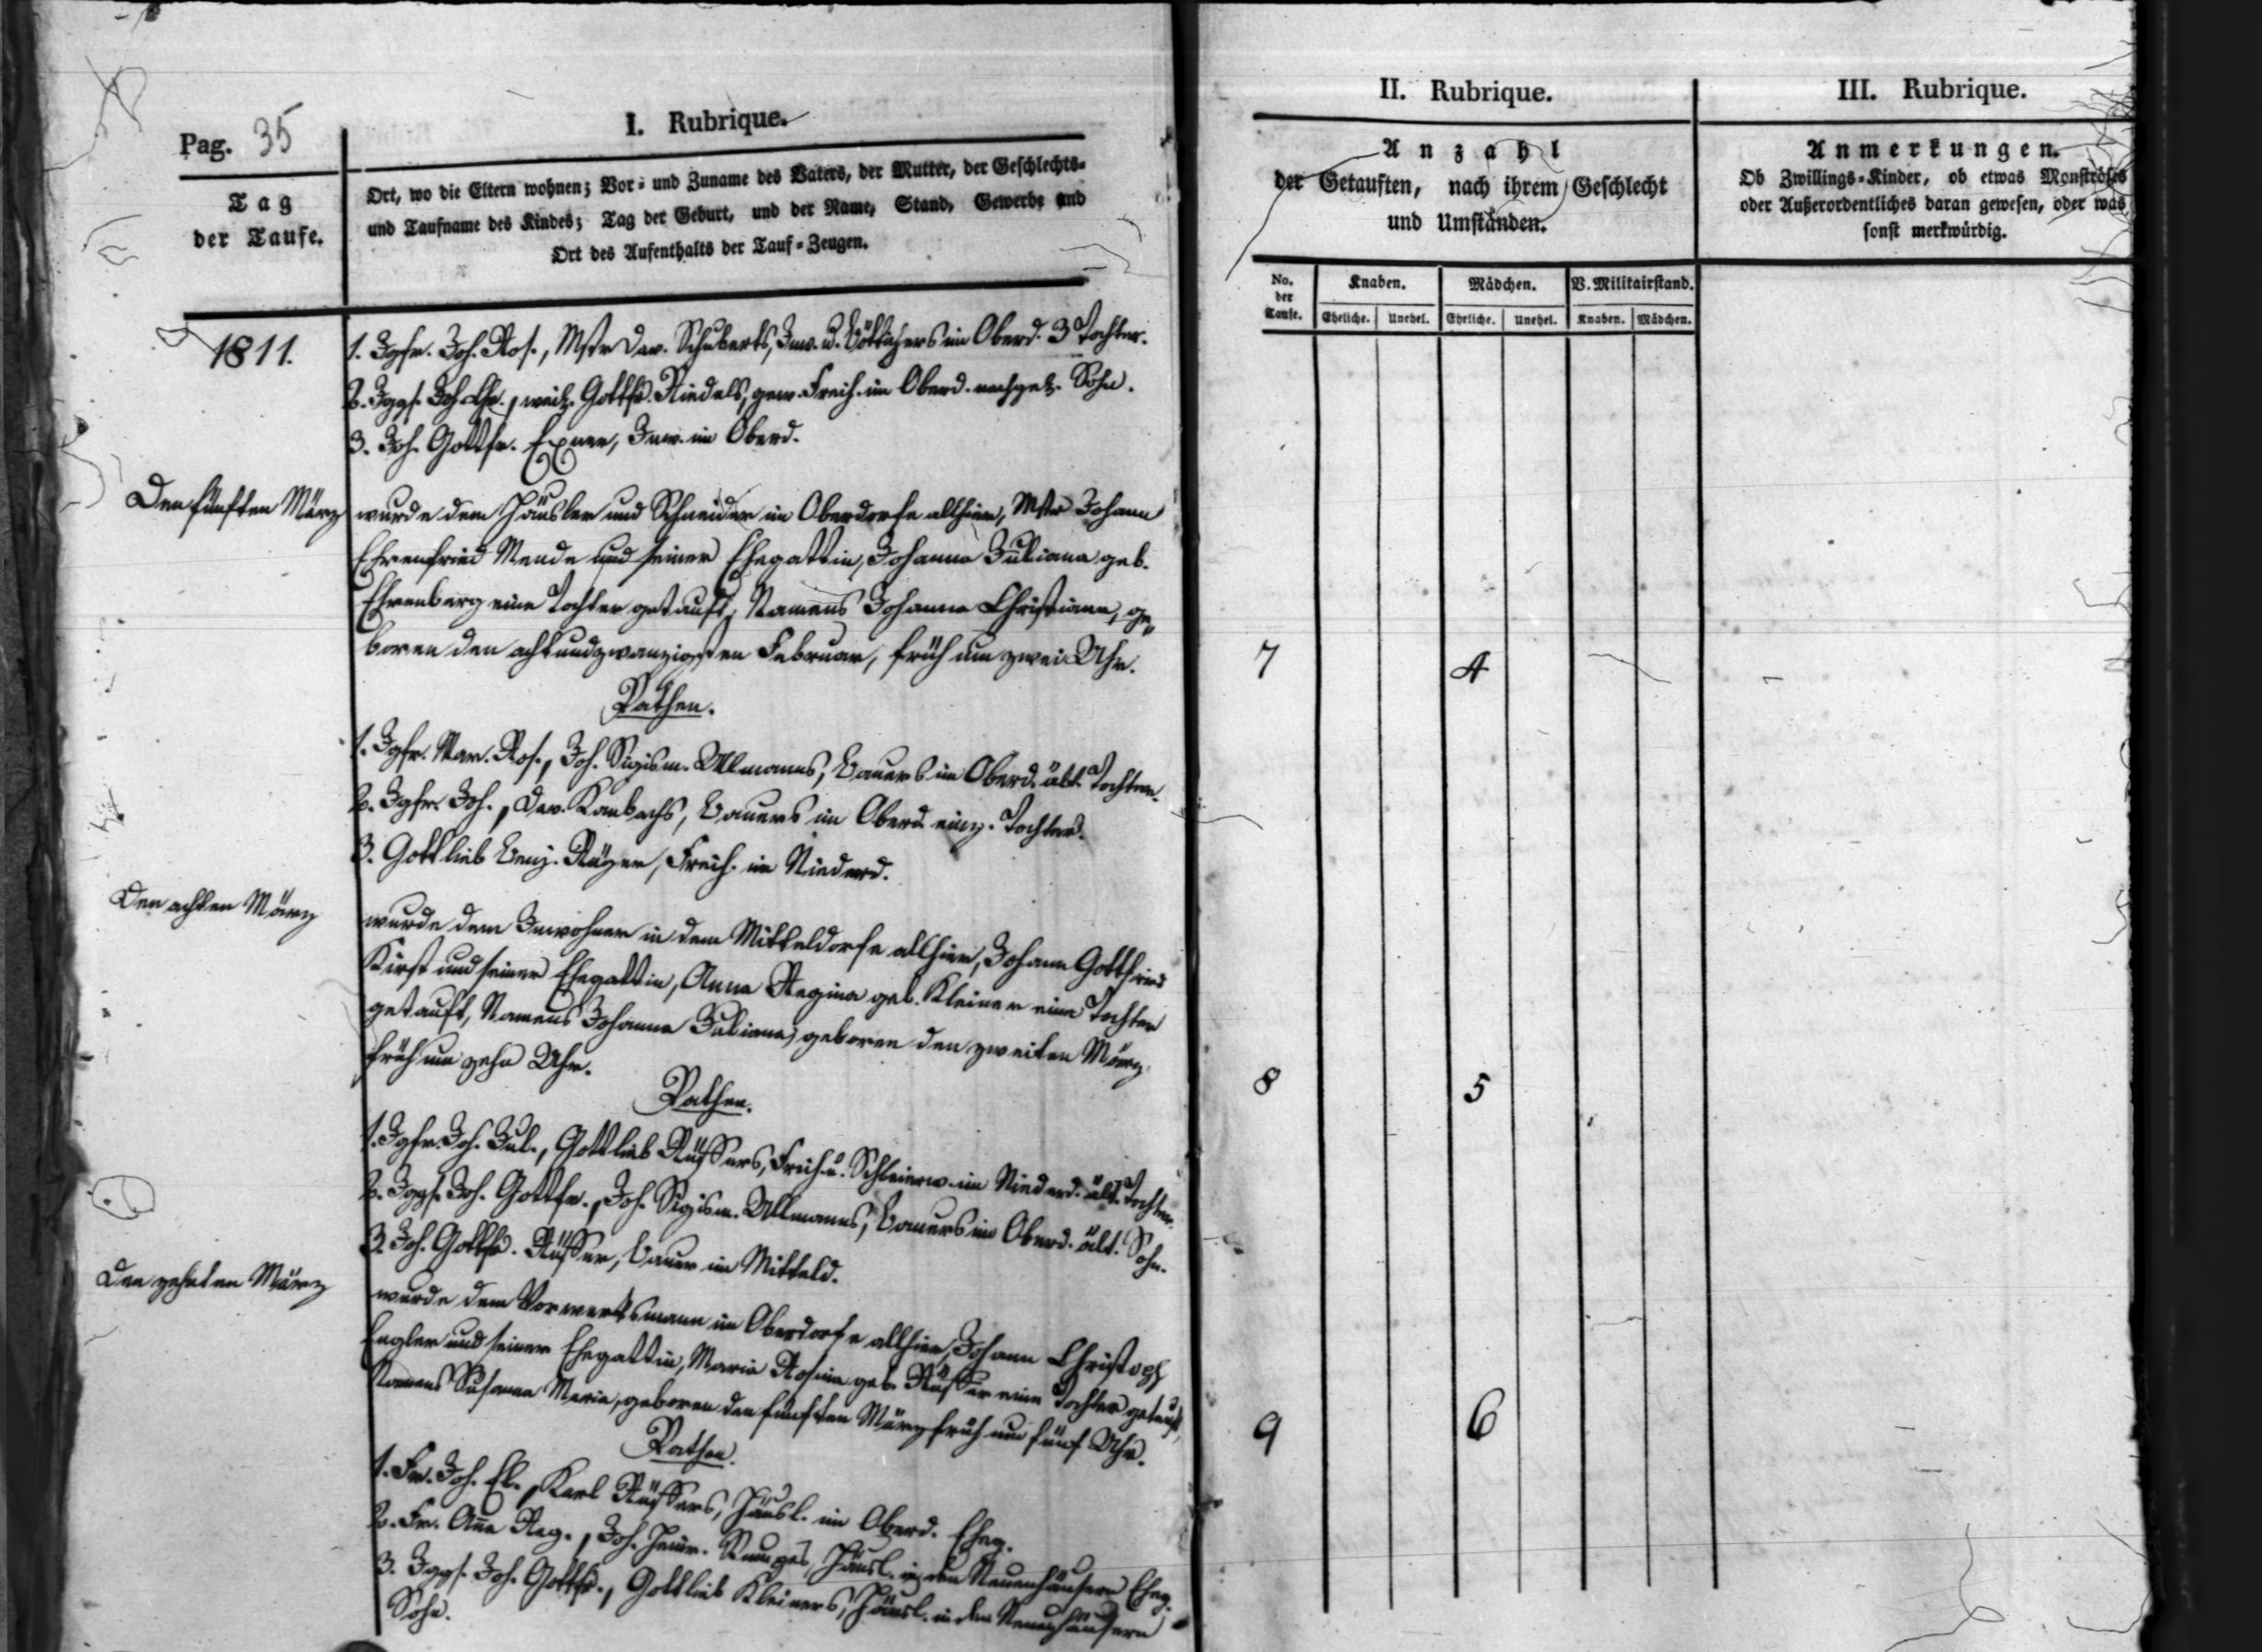 Pag. 35
I. Rubrique.
Tag
der Taufe.
Ort, wo die Eltern wohnen; Vor- und Zuname des Vaters, der Mutter, der Geschlechts-
und Taufname des Kindes; Tag der Geburt, und der Name, Stand, Gewerbe und
Ort des Aufenthalts der Tauf-Zeugen.
1811.
1. Jgfr. Joh. Ros., Mstr Dav. Schuberts, Inw. u. Böttchers im Oberd. 3 Tochter.
2. Jggs. Joh. Chr., weil. Gottfr. Riedels, gew. Freih. im Oberd. nachgel. Sohn.
3. Joh. Gottfr. Exner, Inw. im Oberd.
Den fünften März
wurde dem Häusler und Schneider im Oberdorfe allhier, Mstr Johann
Ehrenfried Mende und seiner Ehegattin, Johanna Juliana geb.
Ehrenberg eine Tochter getauft, Namens Johanna Christiana, ge-
boren den achtundzwanzigsten Februar, früh um zwei Uhr.
Pathen.
1. Jgfr. Mar. Ros., Joh. Sigism. Ullmanns, Bauers im Oberd. ält. Tochter.
2. Jgfr. Joh., Dav. Kambachs, Bauers im Oberd. einz. Tochter.
3. Gottlieb Benj. Freih. im Niederd.
Den achten März
wurde dem Inwohner in dem Mitteldorfe allhier, Johann Gottfried
Kirst und seiner Ehegattin, Anna Regina geb. Kleiner eine Tochter
getauft, Namens Johanna Juliana, geboren den zweiten März
früh um zehn Uhr.
Pathen.
1. Jgfr. Joh. Jul., Gottlieb Rüffers, Freih. u. Schleierw. im Niederd. ält. Tochter.
2. Jggs. Joh. Gottfr., Joh. Sigism. Ullmanns, Bauers im Oberd. ält. Sohn.
3. Joh. Gottfr. Rüffer, Bauer im Mitteld.
Den zehnten März
wurde dem Vorwerksmann im Oberdorfe allhier, Johann Christoph
Engler und seiner Ehegattin, Maria Rosina geb. Rüffer eine Tochter getauft,
Namens Susanna Maria, geboren den fünften März früh um fünf Uhr.
Pathen.
1. Fr. Joh. El., Karl Rüffers, Häusl. im Oberd. Eheg.
2. Fr. Ana Reg., Joh. Heinr. Häusl. in den Neuenhäusern Eheg.
3. Jggs. Joh. Gottfr., Gottlieb Kleiners, Häusl. in den Neuenhäusern
Sohn.
II. Rubrique.
Anzahl
der Getauften, nach ihrem Geschlecht
und Umständen.
No.
der
Taufe.
Knaben.
Mädchen.
V. Militairstand.
Eheliche.
Unehel.
Eheliche.
Unehel.
Knaben.
Mädchen.
7 4
8 5
9 6
III. Rubrique.
Anmerkungen.
Ob Zwillings-Kinder, ob etwas Monströses
oder Außerordentliches daran gewesen, oder was
sonst merkwürdig.